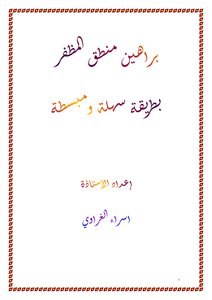 براهين منطق المظفر
بطريقة سهلة ومبسطة
إعداد الاستاذة
اسراء الغراوي